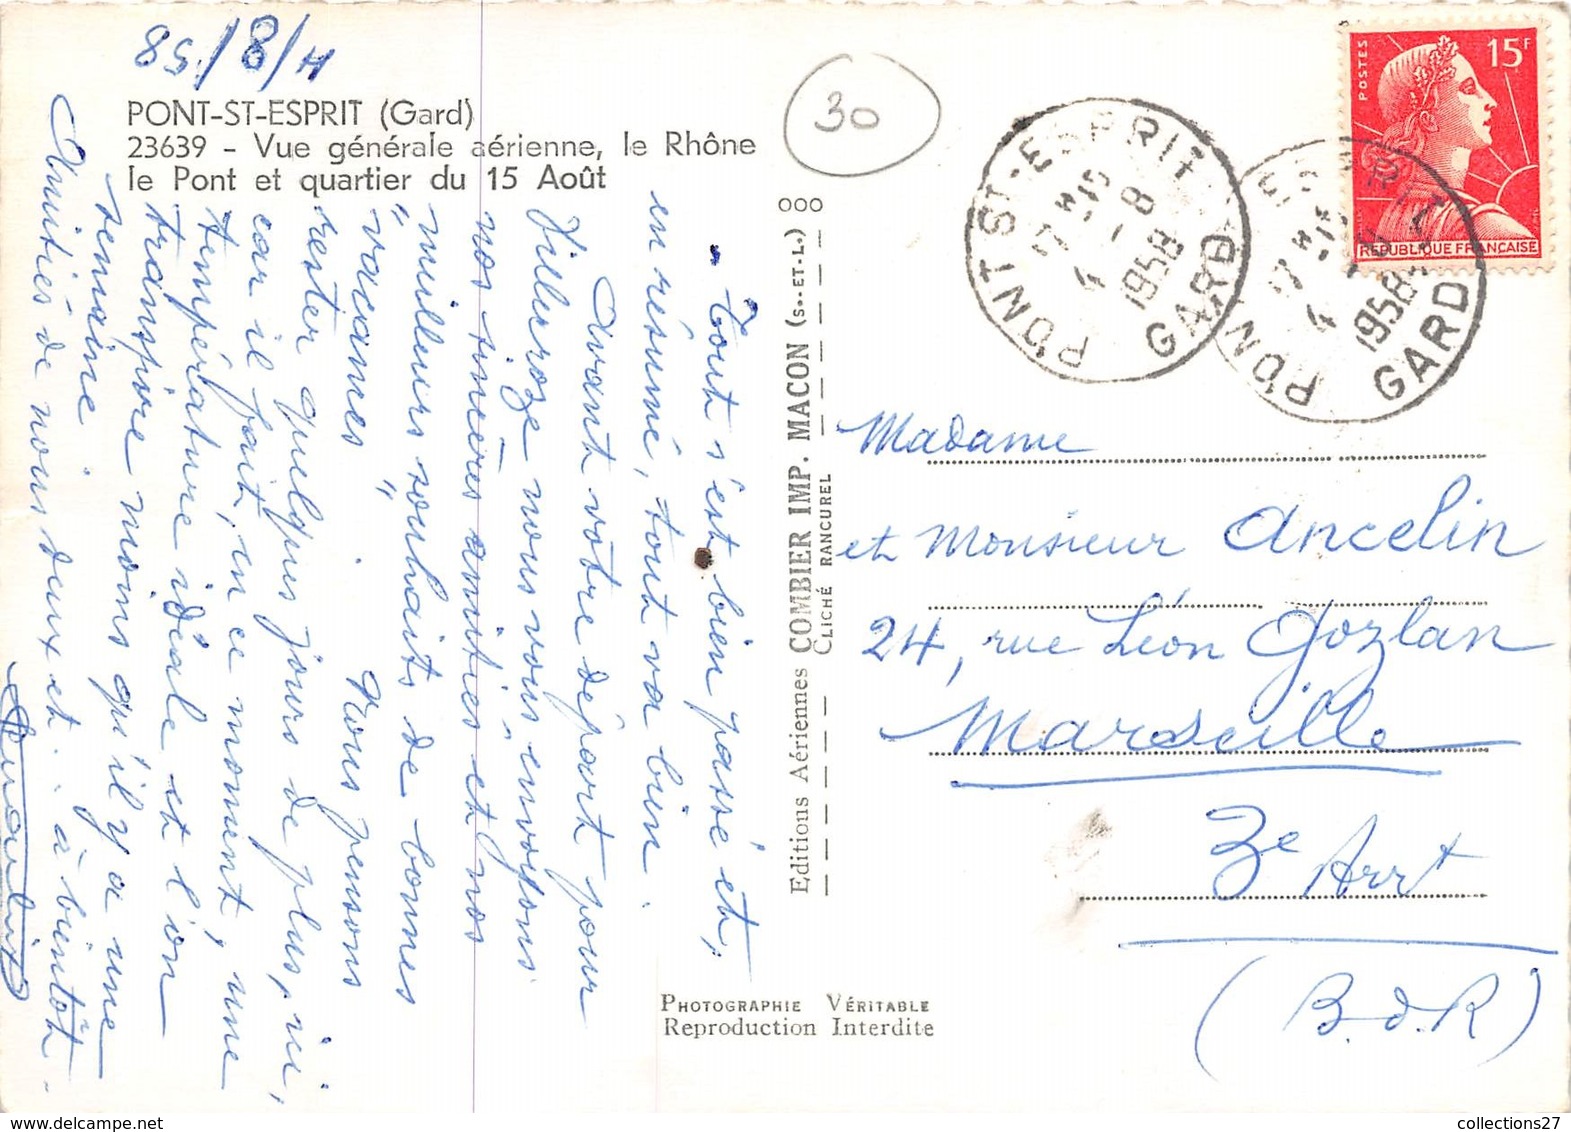 4/8/58
PONT-ST-ESPRIT (Gard)
23639 - Vue générale aérienne, le Rhône
le Pont et quartier du 15 Août
30
Tout s'est bien passé et,
en résumé, tout va bien.
Avant votre départ pour
Villeroze nous vous envoyons
nos sincères amitiés et nos
meilleurs souhaits de bonnes
"vacances". Nous pensons
rester quelques jours de plus, ici,
car il fait, en ce moment, une
température idéale et l'on
transpire moins qu'il y a une
semaine.
Amitiés de nous deux et.. à bientôt.
ooo
Editions Aériennes COMBIER IMP. MACON (S.-ET-L.)
CLICHÉ RANCUREL
PHOTOGRAPHIE VÉRITABLE
Reproduction Interdite
PONT-ST-ESPRIT
17H15
4 - 8
1958
GARD
PONT-ST-ESPRIT
17H15
4 - 8
1958
GARD
POSTES
15F
REPUBLIQUE FRANÇAISE
Madame
et Monsieur Ancelin
24, rue Léon Gozlan
Marseille
3e Arrt
(B.d.R)
collections27